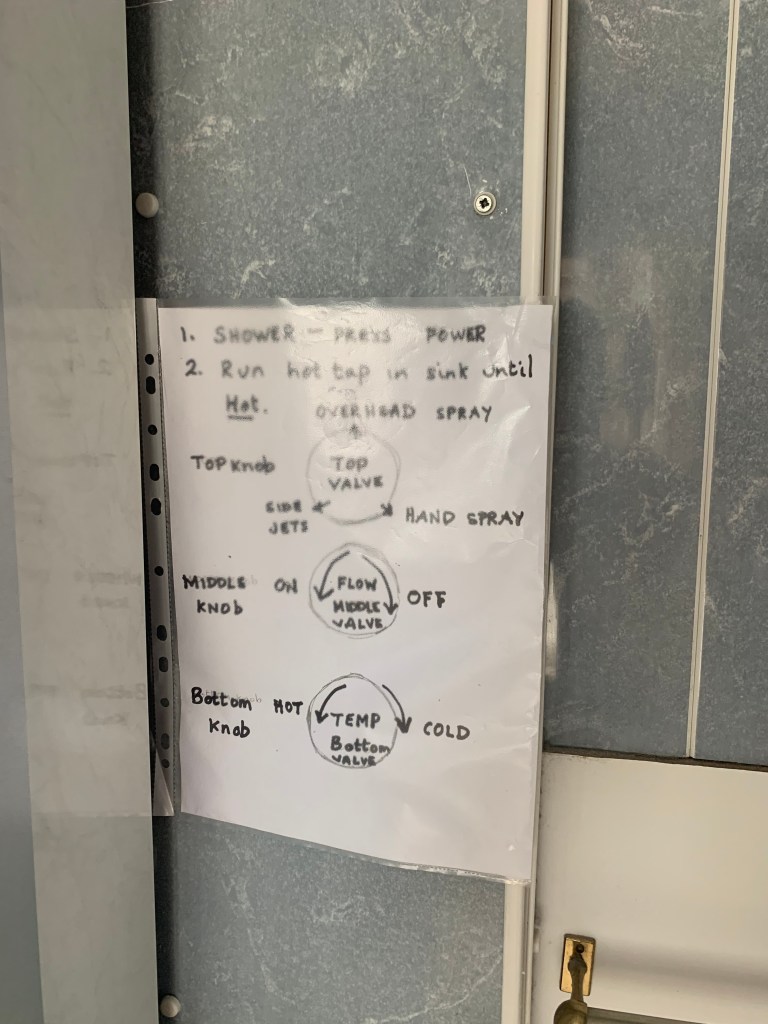 1. SHOWER - PRESS POWER
2. Run hot tap in sink until
Hot.
OVERHEAD SPRAY
TOP Knob
TOP
VALVE
SIDE
JETS
HAND SPRAY
MIDDLE
KNOB
ON
FLOW
MIDDLE
VALVE
OFF
Bottom
Knob
HOT
TEMP
Bottom
VALVE
COLD